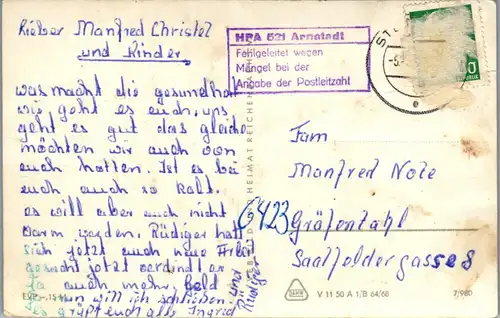 Lieber Manfred Christel
und Kinder
was macht die gesundheit
wie geht es euch, uns
geht es gut das gleiche
möchten wir auch von
euch hatten. Ist es bei
euch auch so kalt.
es will aber auch nicht
warm werden. Rüdiger hatt
sich jetzt auch neue Arbeit
gesucht jetzt verdient er
ja auch mehr geld
nun will ich schließen
es grüßt euch alle Ingrid
und
Rüdiger
HPA 521 Arnstadt
Fehlgeleitet wegen
Mängel bei der
Angabe der Postleitzahl
Fam
Manfred Note
6423 Gräfentahl
Saalfeldergasse 8
BILD UND HEIMAT REICHENBACH
V 11 50 A 1/B 64/68
7/980